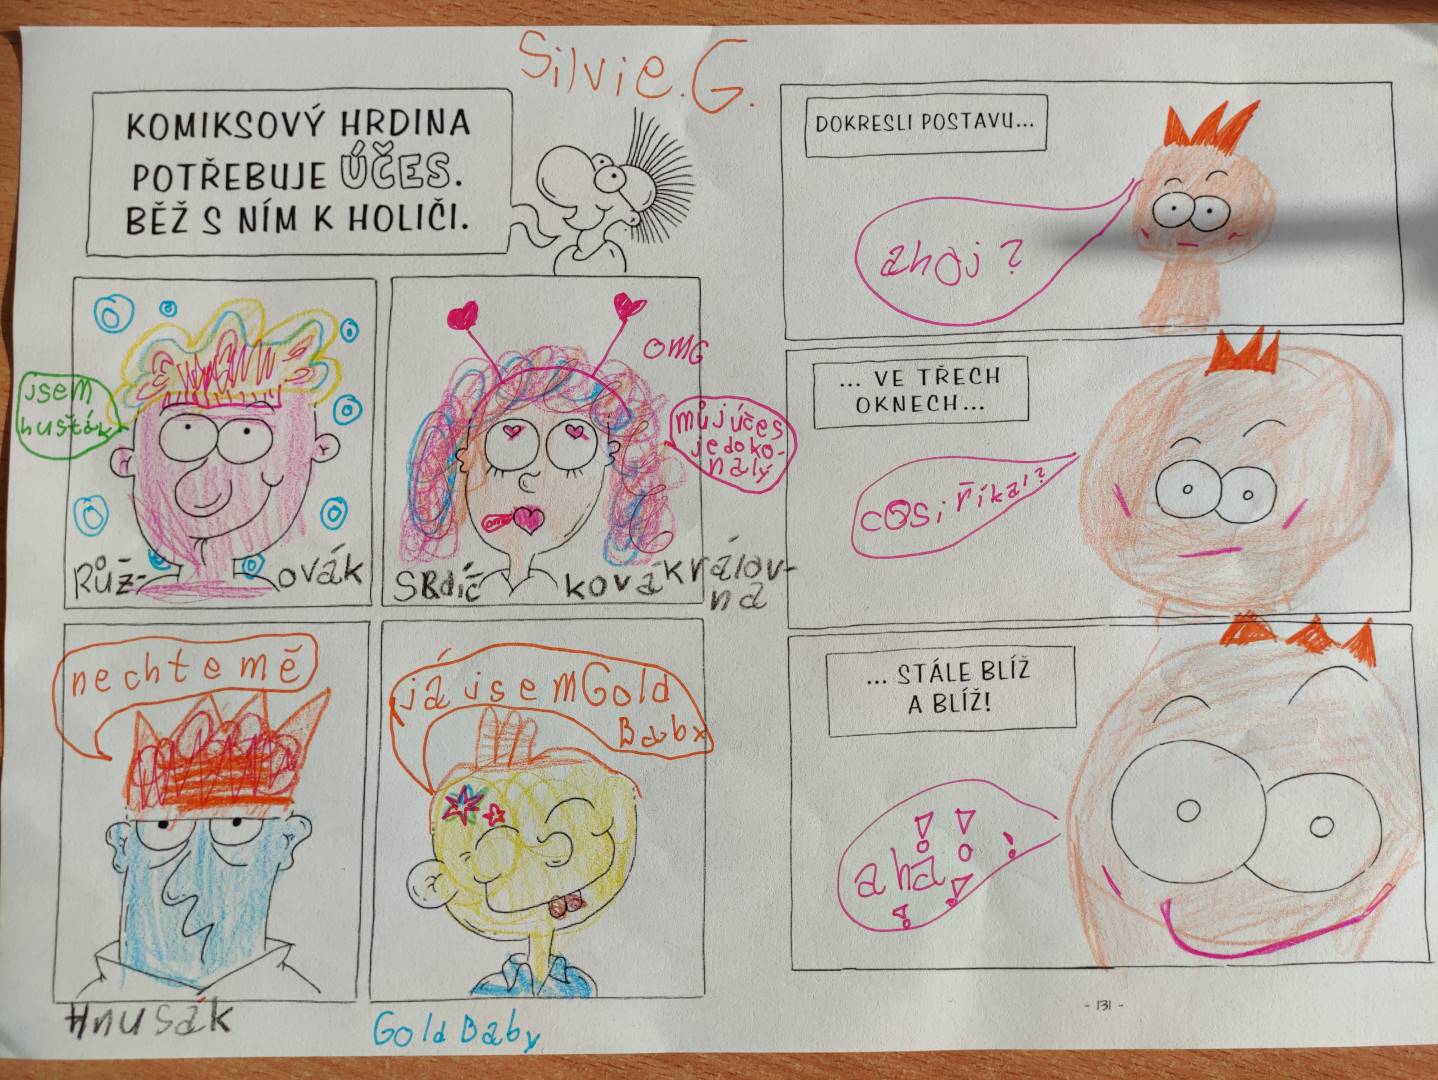 Silvie.G.
KOMIKSOVÝ HRDINA
POTŘEBUJE ÚČES.
BĚŽ S NÍM K HOLIČI.
jsem
hušták
Růž-
ovák
OMG
můj účes
je doko-
nalý
omg
SRdíč
ková
králov-
na
nechte mě
Hnusák
já jsem Gold
Baby
Gold Baby
DOKRESLI POSTAVU...
ahoj?
... VE TŘECH
OKNECH...
cosi říkal?
... STÁLE BLÍŽ
A BLÍŽ!
aha!!!!!
- 131 -